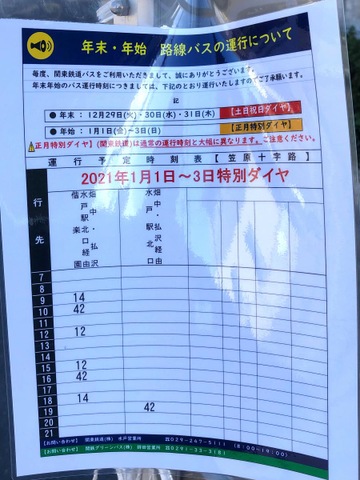 年末・年始 路線バスの運行について
毎度、関東鉄道バスをご利用いただきまして、誠にありがとうございます。
年末年始のバス運行時刻につきましては、下記のとおり運行いたしますのでご了承願います。
記
●年末：12月29日(火)・30日(水)・31日(木)【土日祝日ダイヤ】
●年始：1月1日(金)～3日(日)【正月特別ダイヤ】
⚠【正月特別ダイヤ】(関東鉄道)は通常の運行時刻と大幅に異なります。ご注意ください。
運行予定時刻表【笠原十字路】
2021年1月1日～3日特別ダイヤ
行先
水戸駅北口
畑中・払沢
7
8
9 14
10 42
11
12 12
13
14
15 12
16 42
17
18 14
19 42
20
21
【お問い合わせ】 関東鉄道(株) 水戸営業所 ☎029-247-5111
【お問い合わせ】 関鉄グリーンバス(株)